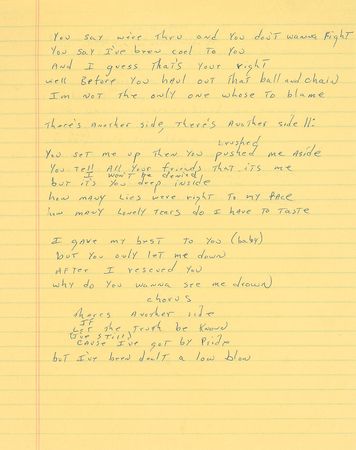 You say we're thru and you don't wanna fight
You say I've been cool to you
And I guess that's your right
well Before you haul out that ball and chain
I'm not the only one whose to blame
There's another side, there's another side ||:
brushed
You set me up then you pushed me aside
You tell all your friends that its me
I won't be denied
but it's you deep inside
how many lies were right to my face
how many lonely tears do I have to taste
I gave my best to you (baby)
but you only let me down
after I rescued you
why do you wanna see me drown
chorus
theres another side
IF
Let the truth be known
(I've still)
cause I've got my Pride
but I've been dealt a low blow